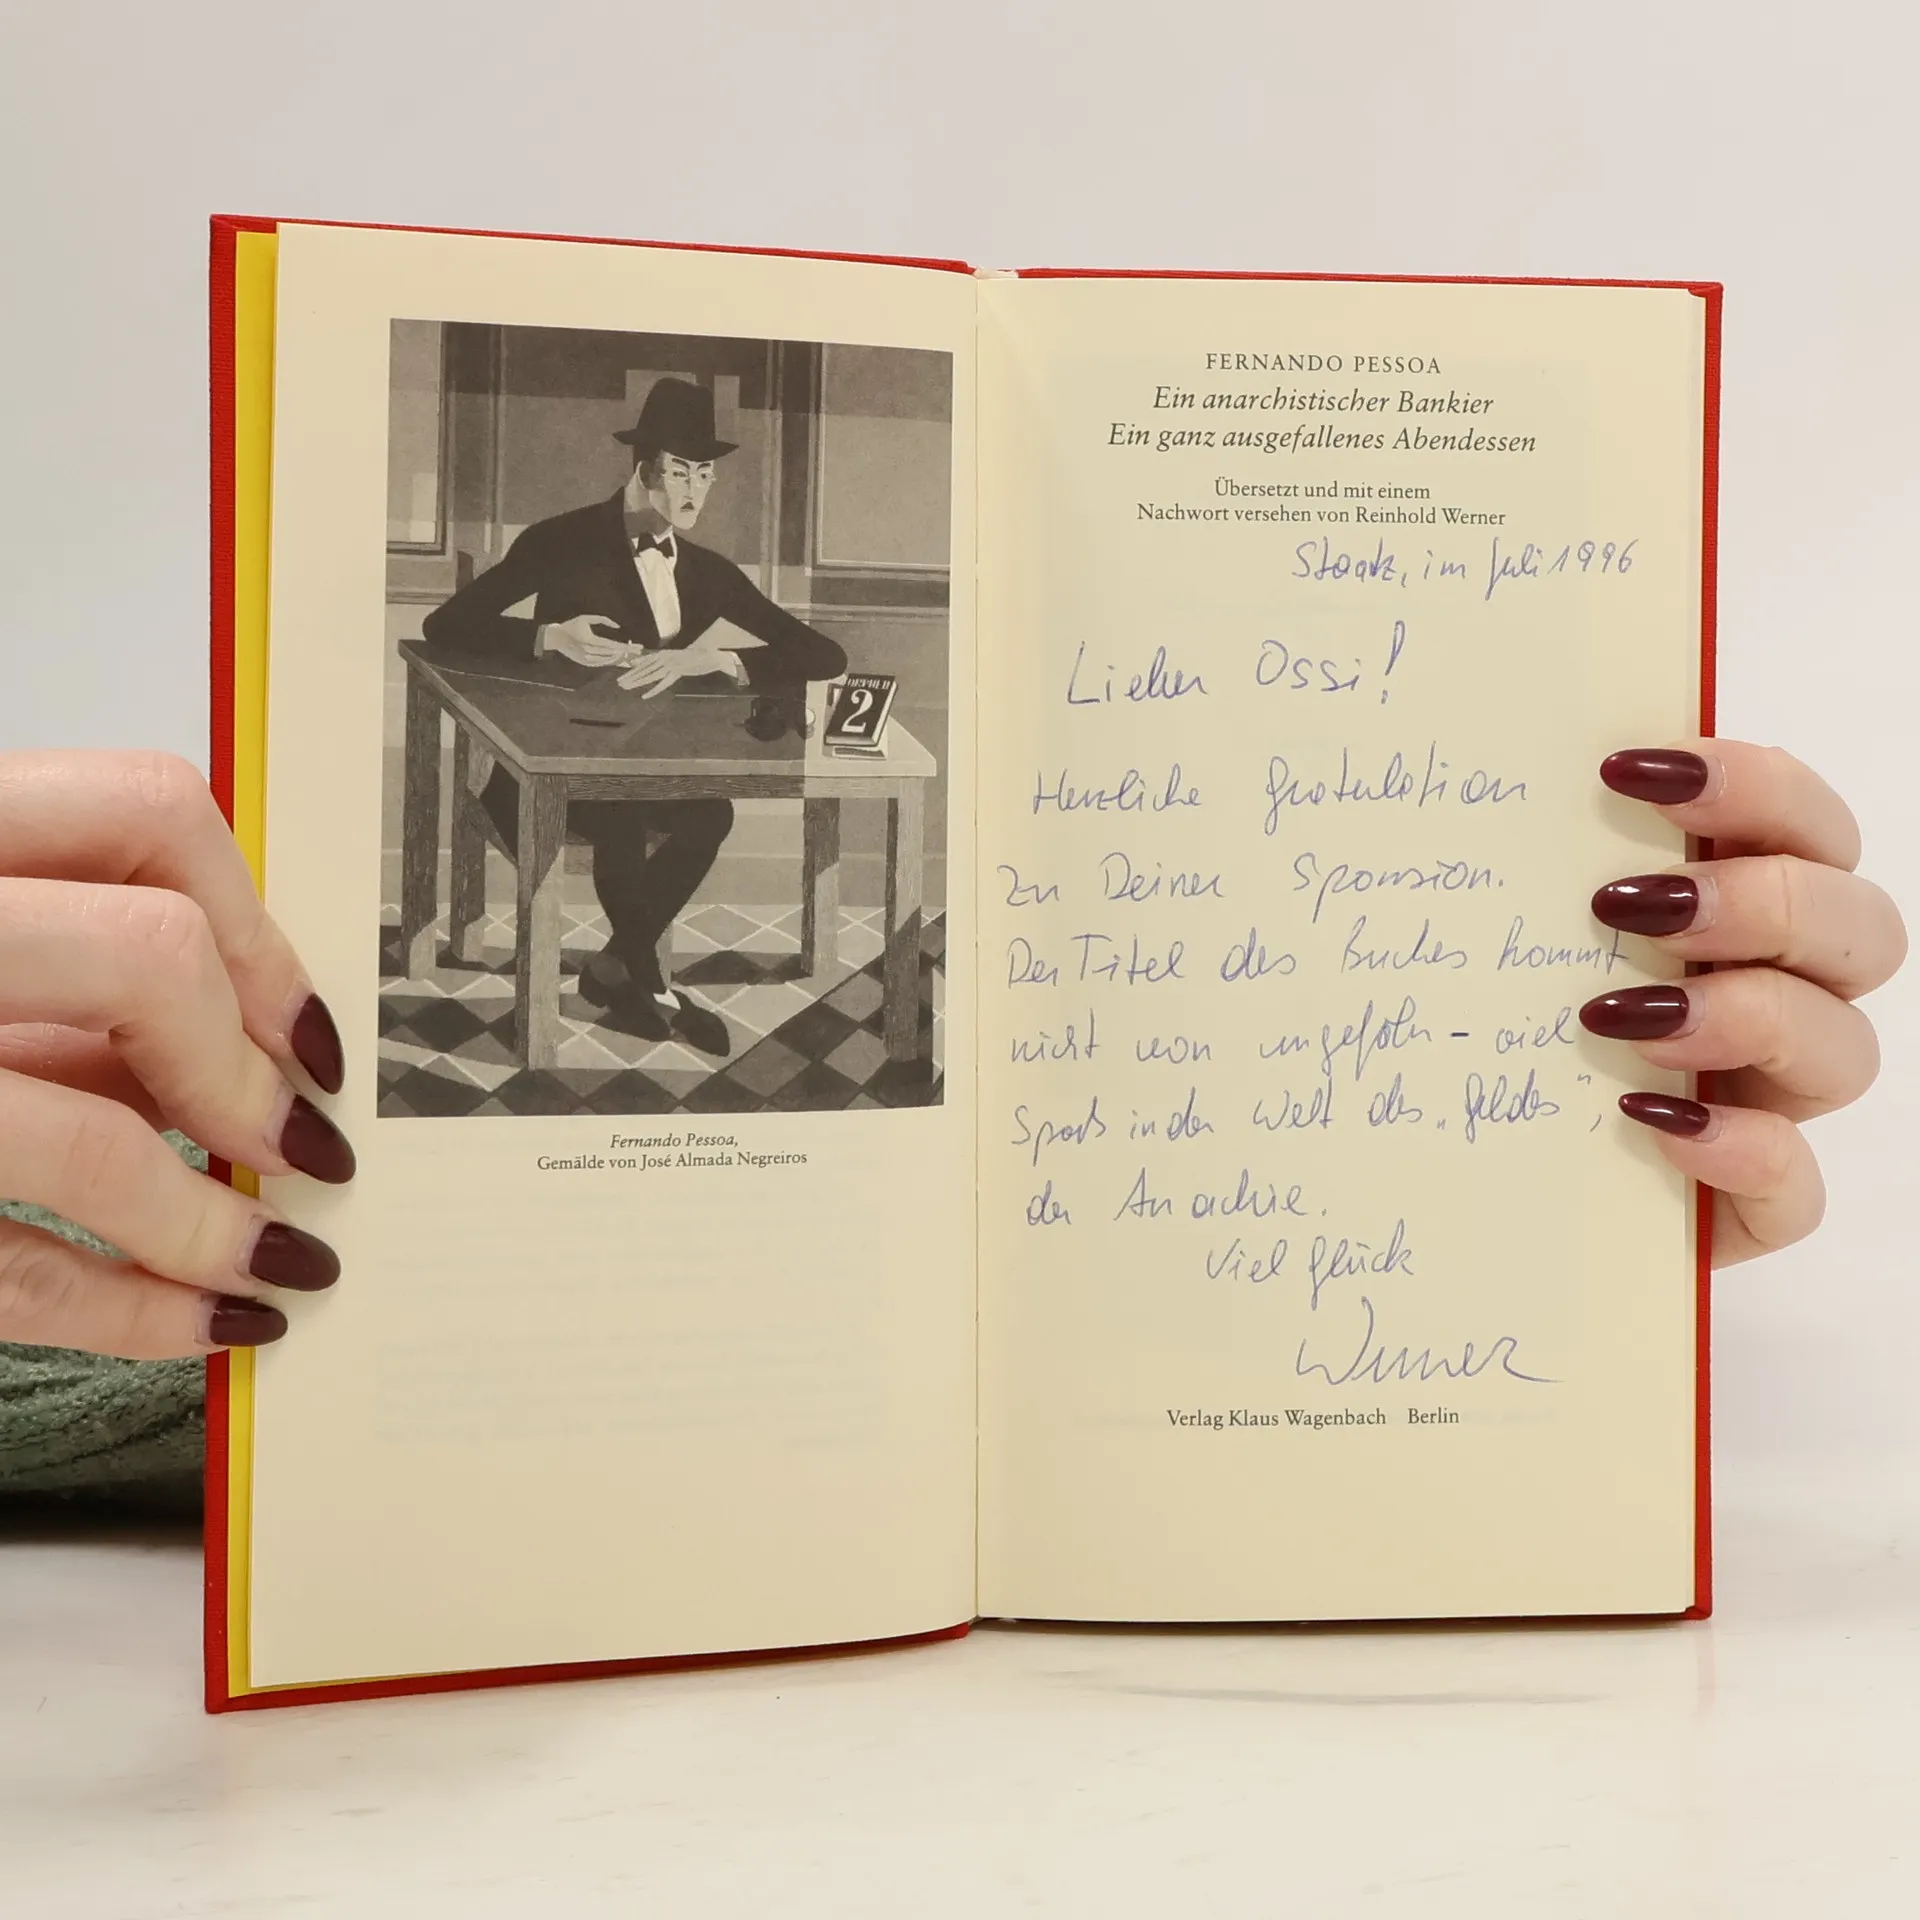 ORPHEU
2
Fernando Pessoa,
Gemälde von José Almada Negreiros
FERNANDO PESSOA
Ein anarchistischer Bankier
Ein ganz ausgefallenes Abendessen
Übersetzt und mit einem
Nachwort versehen von Reinhold Werner
Staatz, im Juli 1996
Lieber Ossi!
Herzliche Gratulation
zu Deiner Sponsion.
Der Titel des Buches kommt
nicht von ungefähr – viel
Spaß in der Welt des „Geldes",
der Anarchie.
Viel Glück
Werner
Verlag Klaus Wagenbach Berlin